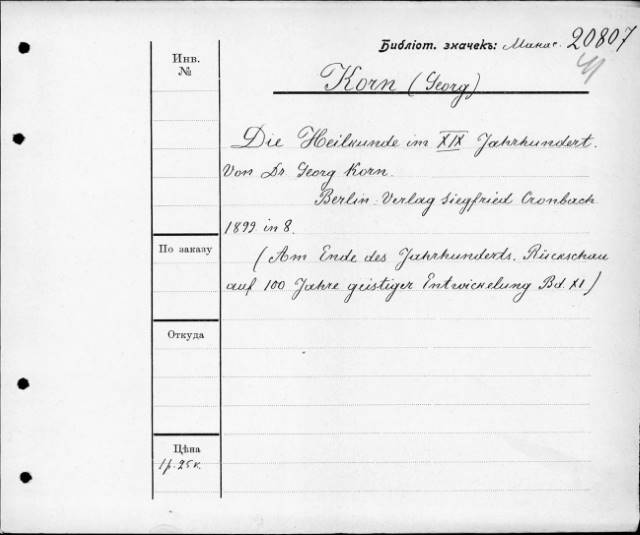 Библіот. значекъ: Манас. 20807
Инв.
№
Korn (Georg)
Die Heilkunde im XIX Jahrhundert.
Von Dr. Georg Korn.
Berlin: Verlag Siegfried Cronbach
1899 in 8.
По заказу
(Am Ende des Jahrhunderts. Rückschau
auf 100 Jahre geistiger Entwickelung Bd. XI)
Откуда
Цѣна
1 р. 25 к.